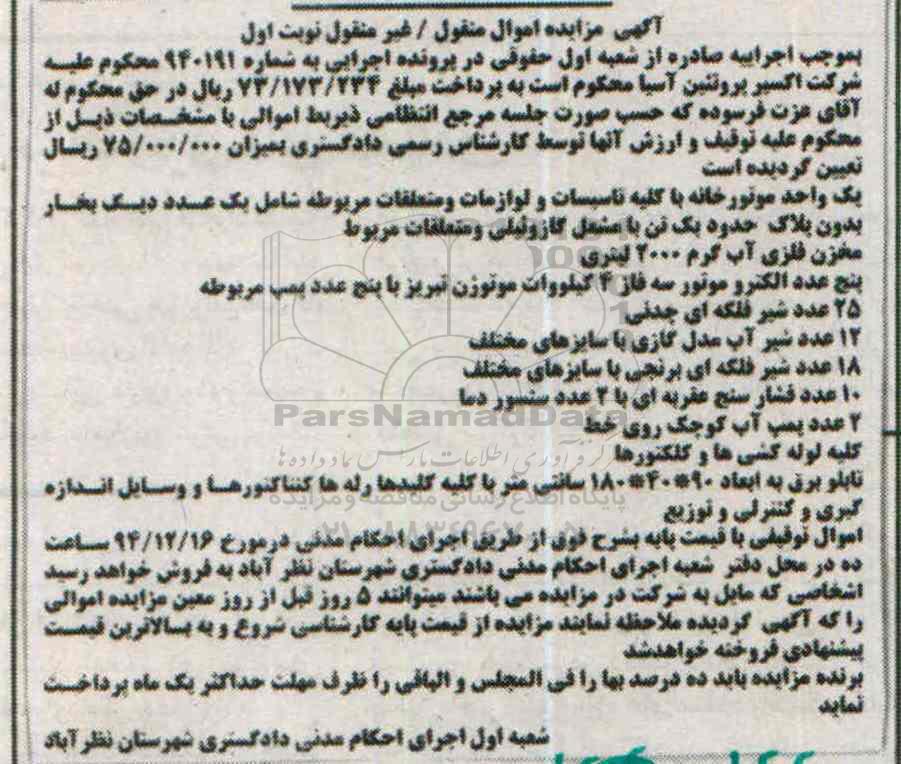 آگهی مزایده اموال منقول / غیر منقول نوبت اول
بموجب اجراییه صادره از شعبه اول حقوقی در پرونده اجرایی به شماره ۹۴۰۱۹۱ محکوم علیه
شرکت اکسیر پروتئین آسیا محکوم است به پرداخت مبلغ ۷۳/۱۷۳/۲۳۴ ریال در حق محکوم له
آقای عزت فرسوده که حسب صورت جلسه مرجع انتظامی ذیربط اموالی با مشخصات ذیل از
محکوم علیه توقیف و ارزش آنها توسط کارشناس رسمی دادگستری بمیزان ۷۵/۰۰۰/۰۰۰ ریال
تعیین گردیده است
یک واحد موتورخانه با کلیه تاسیسات و لوازمات ومتعلقات مربوطه شامل یک عدد دیگ بخار
بدون پلاک حدود یک تن با مشعل گازوئیلی ومتعلقات مربوط
مخزن فلزی آب گرم ۲۰۰۰ لیتری
پنج عدد الکترو موتور سه فاز ۴ کیلووات موتوژن تبریز با پنج عدد پمپ مربوطه
۲۵ عدد شیر فلکه ای چدنی
۱۲ عدد شیر آب مدل گازی با سایزهای مختلف
۱۸ عدد شیر فلکه ای برنجی با سایزهای مختلف
۱۰ عدد فشار سنج عقربه ای با ۲ عدد سنسور دما
۲ عدد پمپ آب کوچک روی خط
ParsNamadData
کلیه لوله کشی ها و کلکتورها
مرکز فرآوری اطلاعات پارس نماد داده ها
تابلو برق به ابعاد ۹۰*۴۰*۱۸۰ سانتی متر با کلیه کلیدها رله ها کنتاکتورها و وسایل اندازه
پایگاه اطلاع رسانی مناقصه و مزایده
گیری و کنترلی و توزیع
اموال توقیفی با قیمت پایه بشرح فوق از طریق اجرای احکام مدنی درمورخ ۹۴/۱۲/۱۶ ساعت
ده در محل دفتر شعبه اجرای احکام مدنی دادگستری شهرستان نظر آباد به فروش خواهد رسید
اشخاصی که مایل به شرکت در مزایده می باشند میتوانند ۵ روز قبل از روز معین مزایده اموالی
را که آگهی گردیده ملاحظه نمایند مزایده از قیمت پایه کارشناسی شروع و به بالاترین قیمت
پیشنهادی فروخته خواهدشد
برنده مزایده باید ده درصد بها را فی المجلس و الباقی را ظرف مهلت حداکثر یک ماه پرداخت
نماید
شعبه اول اجرای احکام مدنی دادگستری شهرستان نظرآباد